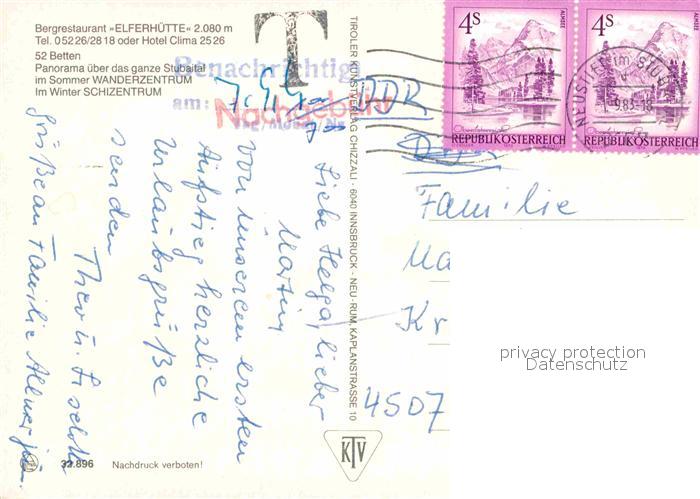 Bergrestaurant »ELFERHÜTTE« 2.080 m
Tel. 05226/2818 oder Hotel Clima 2526
52 Betten
Panorama über das ganze Stubaital
im Sommer WANDERZENTRUM
Im Winter SCHIZENTRUM
T
Benachrichtigt
am:
Nachgebühr
Liebe Helga, lieber
Martin
von unserem ersten
Aufstieg herzliche
Urlaubsgrüße
senden
Theo u. Liselotte
Grüße an Familie
TIROLER KUNSTVERLAG CHIZZALI · 6040 INNSBRUCK - NEU-RUM, KAPLANSTRASSE 10
4S
ALMSEE
REPUBLIK ÖSTERREICH
4S
ALMSEE
REPUBLIK ÖSTERREICH
NEUSTIFT im STUB
9.83-18
DDR
Familie
Ma
Kr
4507
privacy protection
Datenschutz
KTV
32.896 Nachdruck verboten!